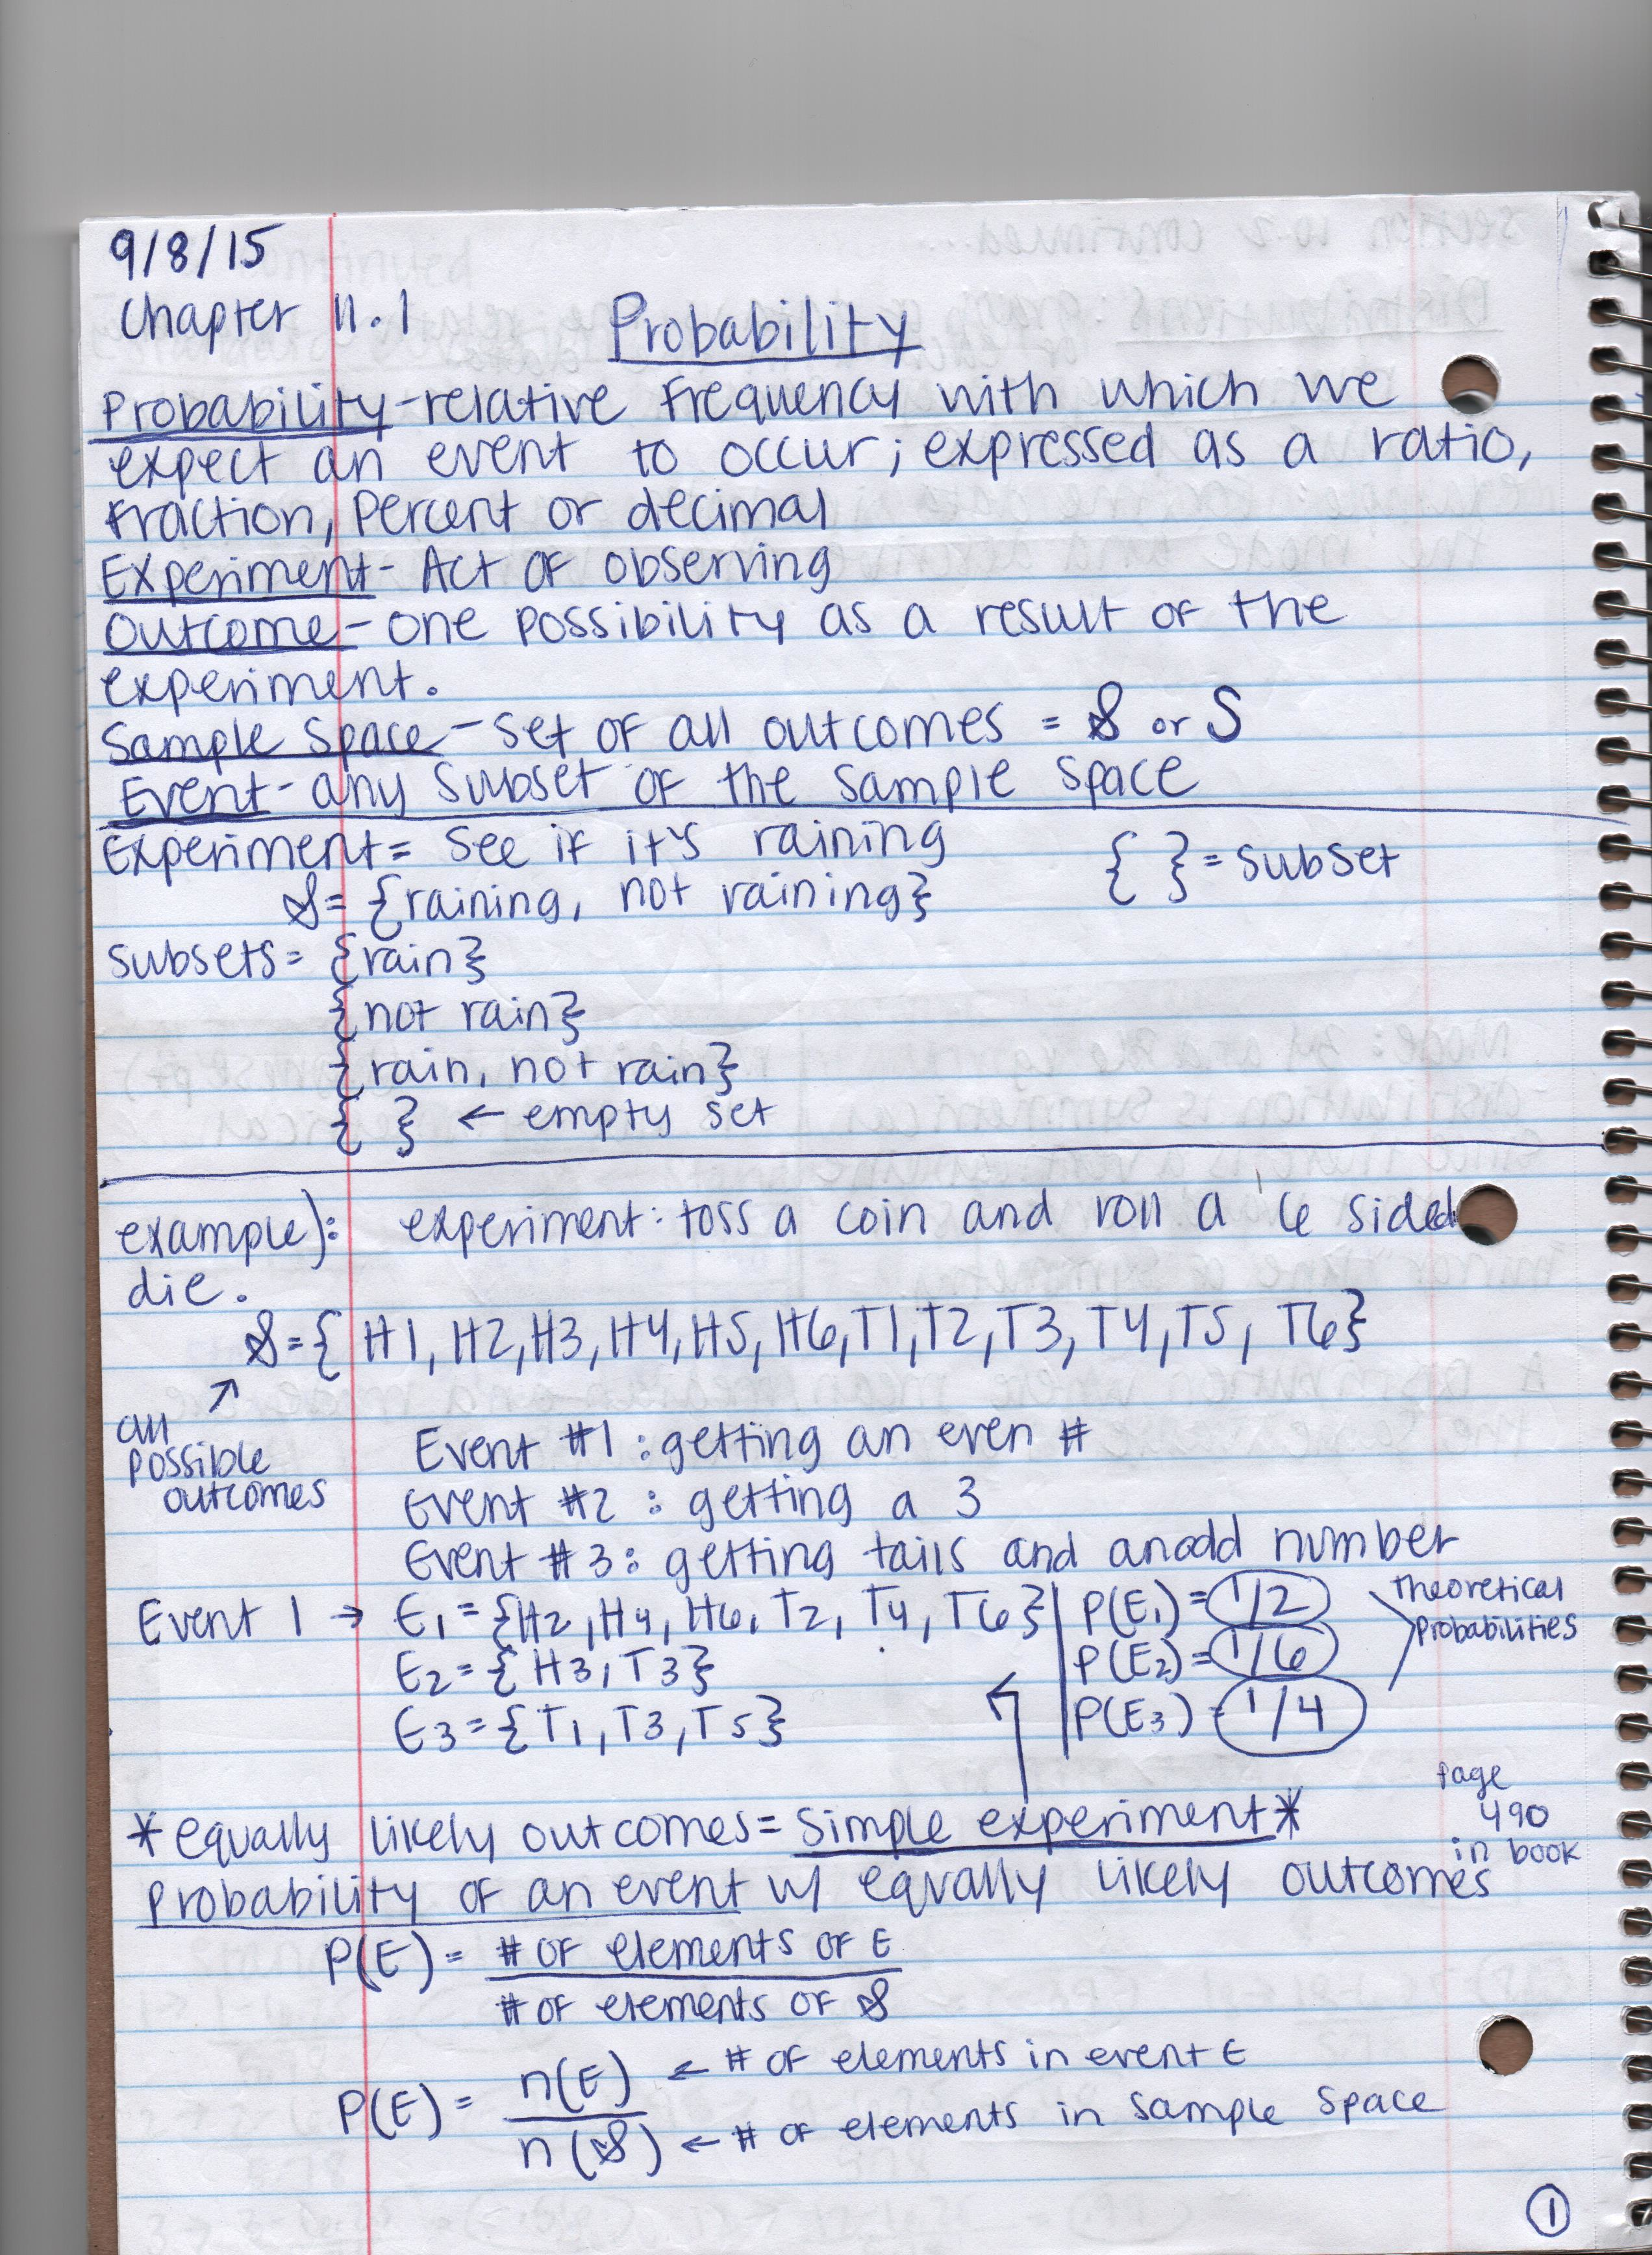 9/8/15
Chapter 11.1
Probability
Probability-relative frequency with which we
expect an event to occur; expressed as a ratio,
fraction, percent or decimal
Experiment- Act of observing
Outcome- one possibility as a result of the
experiment.
Sample Space- set of all outcomes = 𝒮 or S
Event- any subset of the sample space
Experiment= See if it's raining
{ } = subset
𝒮= {raining, not raining}
subsets= {rain}
{not rain}
{rain, not rain}
{ } ← empty set
example): experiment: toss a coin and roll a 6 sided
die.
𝒮={ H1, H2, H3, H4, H5, H6, T1, T2, T3, T4, T5, T6}
↗
all
possible
outcomes
Event #1: getting an even #
Event #2: getting a 3
Event #3: getting tails and an odd number
Event 1 → E₁={H2, H4, H6, T2, T4, T6} | P(E₁)= 1/2
E₂={H3, T3} | P(E₂)= 1/6
E₃={T1, T3, T5} | P(E₃)= 1/4
Theoretical
Probabilities
page
490
in book
*equally likely outcomes= Simple experiment*
Probability of an event w/ equally likely outcomes
P(E)= # of elements of E
# of elements of 𝒮
P(E)= n(E) ← # of elements in event E
n(𝒮) ← # of elements in sample space
1